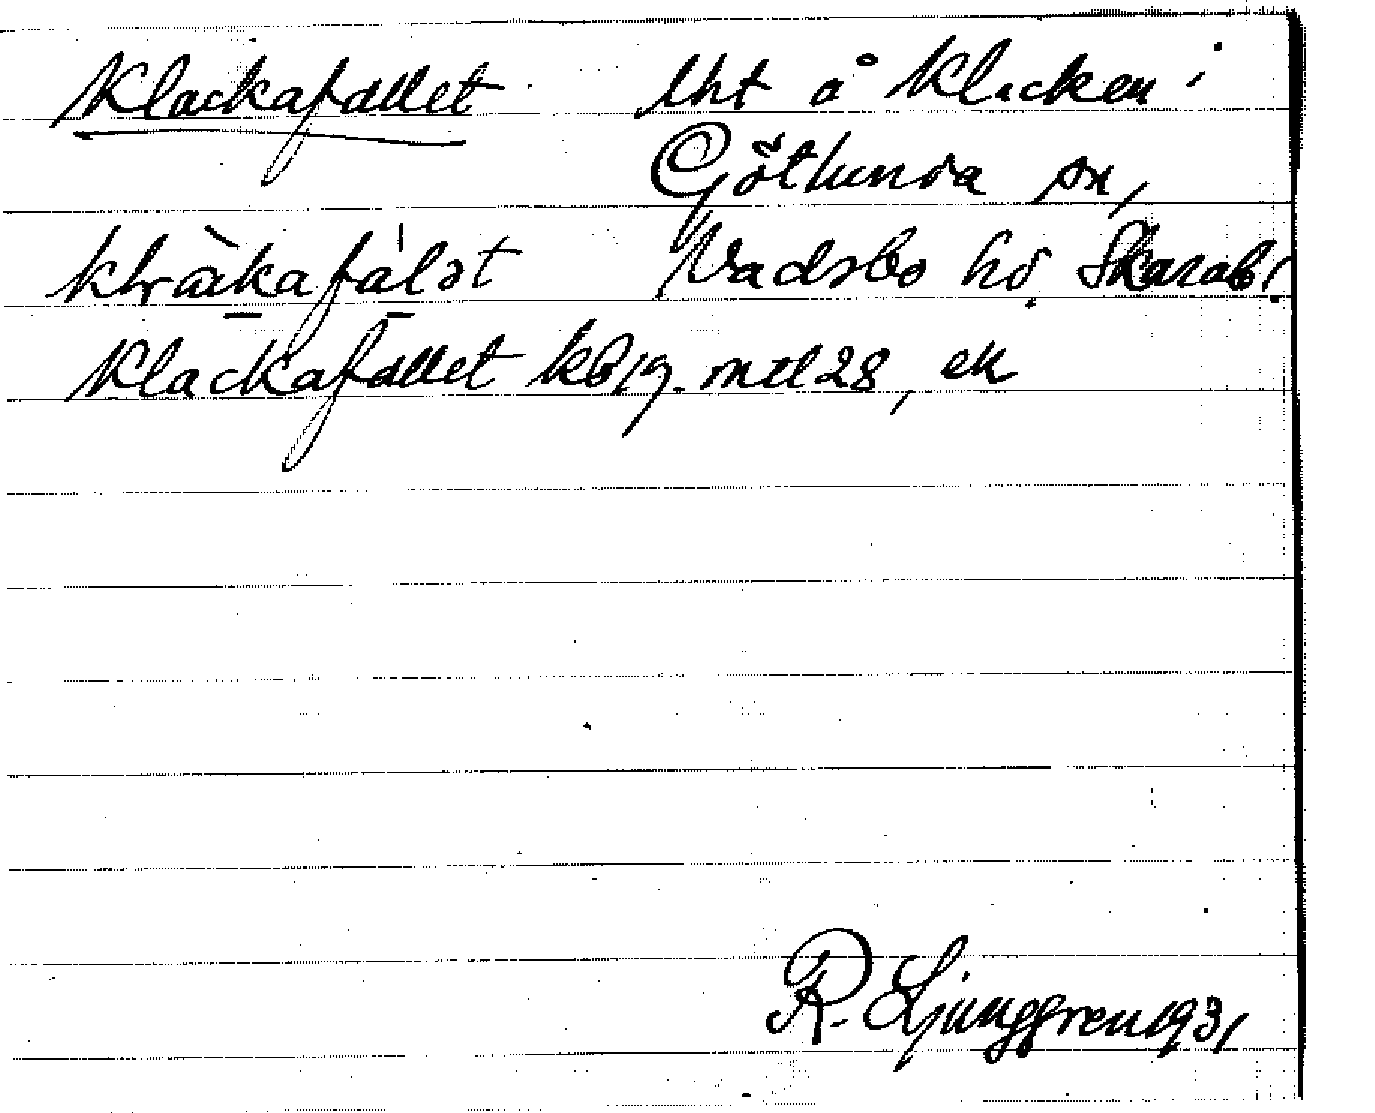 Klackafallet Uht å Klacken i
Götlunda sn,
Vadsbo hd Skarab.
Klackafallet kb19. mtl 28, ek
R. Ljunggren 1931